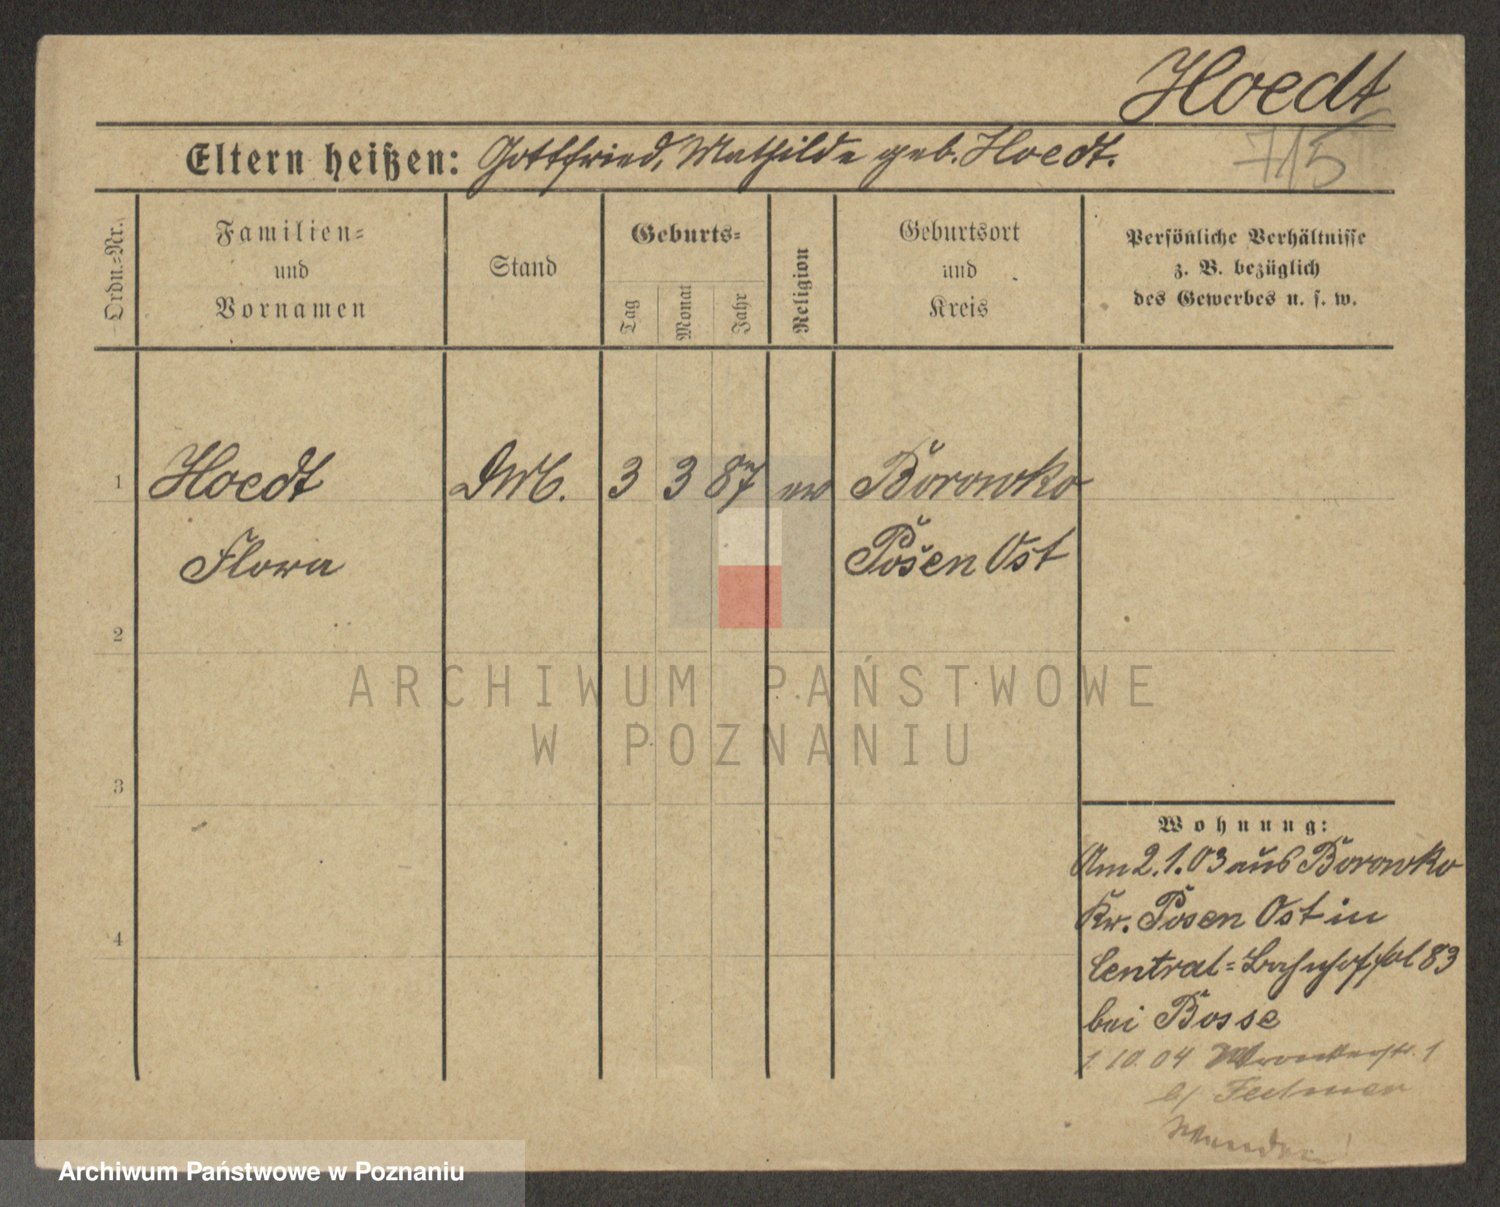 Hoedt
715
Eltern heißen: Gottfried, Mathilde geb. Hoedt.
Ordn.-Nr.
Familien-
und
Vornamen
Stand
Geburts-
Tag
Monat
Jahr
Religion
Geburtsort
und
Kreis
Persönliche Verhältnisse
z. B. bezüglich
des Gewerbes u. s. w.
1 Hoedt 3 3 87 ev Borowko
Flora Posen Ost
2
3
4
ARCHIWUM PAŃSTWOWE
W POZNANIU
Wohnung:
Am 2.1.03 aus Borowko
Kr. Posen Ost in
Central-Bahnhof 83
bei Bosse
1.10.04 1
b/
Archiwum Państwowe w Poznaniu